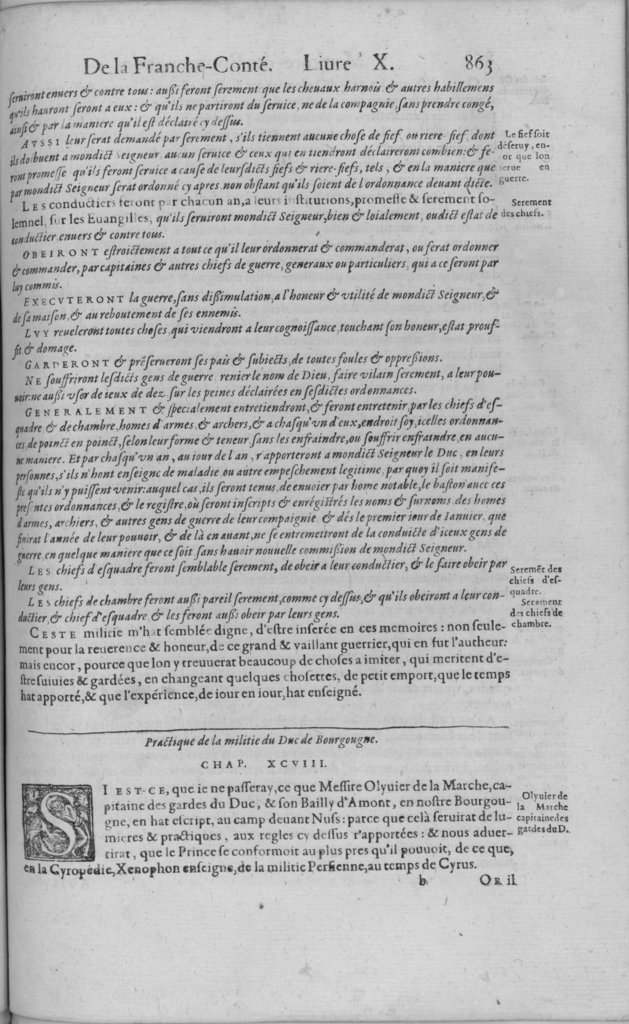 De la Franche-Conté. Liure X. 863
seruiront enuers & contre tous: außi feront serement que les cheuaux harnois & autres habillemens
qu'ils hauront seront a eux: & qu'ils ne partiront du seruice, ne de la compagnie, sans prendre congé,
ainsi & par la maniere qu'il est déclairé cy dessus.
AVSSI leur serat demandé par serement, s'ils tiennent aucune chose de fief, ou riere-fief, dont
ils doibuent a mondict Seigneur aucun seruice & ceux qui en tiendront déclaireront combien: & fe-
ront promesse qu'ils feront seruice a cause de leursdicts fiefs & riere-fiefs, tels, & en la maniere que
par mondict Seigneur serat ordonné cy apres non obstant qu'ils soient de l'ordonnance deuant dicte.
Le fief soit
déseruy, en-
or que lon
serue en
guerre.
LES conductiers feront par chacun an, a leurs institutions, promesse & serement so-
lemnel, sur les Euangilles, qu'ils seruiront mondict Seigneur, bien & loialement, oudict estat de
conductier, enuers & contre tous.
Serement
des chefs.
OBEIRONT estroictement a tout ce qu'il leur ordonnerat & commanderat, ou serat ordonner
& commander, par capitaines & autres chiefs de guerre, generaux ou particuliers, qui a ce seront par
luy commis.
EXECVTERONT la guerre, sans dißimulation, a l'honeur & vtilité de mondict Seigneur, &
de sa maison, & au reboutement de ses ennemis.
LVY reueleront toutes choses, qui viendront a leur cognoissance, touchant son honeur, estat prouf-
fit & domage.
GARDERONT & préserueront ses pais & subiects, de toutes foules & oppreßions.
NE souffriront lesdicts gens de guerre renier le nom de Dieu, faire vilain serement, a leur pou-
uoir: ne außi vser de ieux de dez sur les peines déclairées en sesdictes ordonnances.
GENERALEMENT & specialement entretiendront, & feront entretenir, par les chiefs d'es-
quadre & de chambre, homes d'armes & archers, & a chasqu'vn d'eux, endroit soy, icelles ordonnan-
ces, de poinct en poinct, selon leur forme & teneur, sans les enfraindre, ou souffrir enfraindre, en aucu-
ne maniere. Et par chasqu'vn an, au iour de l'an, r'apporteront a mondict Seigneur le Duc, en leurs
personnes, s'ils n'hont enseigne de maladie ou autre empeschement legitime, par quoy il soit manife-
ste qu'ils n'y puissent venir: auquel cas, ils seront tenus, de enuoier par home notable, le baston auec ces
presentes ordonnances, & le registre, où seront inscripts & enrégistrés les noms & surnoms des homes
d'armes, archiers, & autres gens de guerre de leur compaignie & dés le premier iour de Ianuier, que
finirat l'année de leur pouuoir, & de là en auant, ne se entremettront de la conduicte d'iceux gens de
guerre, en quelque maniere que ce soit sans hauoir nouuelle commißion de mondict Seigneur.
LES chiefs d'esquadre feront semblable serement, de obeir a leur conductier, & le faire obeir par
leurs gens.
Seremét des
chiefs d'es-
quadre.
LES chiefs de chambre feront außi pareil serement, comme cy dessus, & qu'ils obeiront a leur con-
ductier, & chief d'esquadre & les feront außi obeir par leurs gens.
Serement
des chiefs de
chambre.
CESTE militie m'hat semblée digne, d'estre inserée en ces memoires: non seule-
ment pour la reuerence & honeur, de ce grand & vaillant guerrier, qui en fut l'autheur:
mais encor, pource que lon y treuuerat beaucoup de choses a imiter, qui meritent d'e-
stre suiuies & gardées, en changeant quelques chosettes, de petit emport, que le temps
hat apporté, & que l'expérience, de iour en iour, hat enseigné.
Practique de la militie du Duc de Bourgougne.
CHAP. XCVIII.
SI EST-CE, que ie ne passeray, ce que Messire Olyuier de la Marche, ca-
pitaine des gardes du Duc, & son Bailly d'Amont, en nostre Bourgou-
gne, en hat escript, au camp deuant Nuss: parce que celà seruirat de lu-
mieres & practiques, aux regles cy dessus r'apportées: & nous aduer-
tirat, que le Prince se conformoit au plus pres qu'il pouuoit, de ce que,
en la Cyropedie, Xenophon enseigne, de la militie Persienne, au temps de Cyrus.
Olyuier de
la Marche
capitaine des
gardes du D.
b OR il